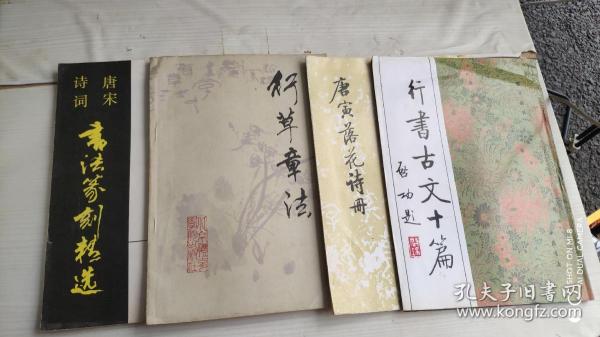 唐宋
诗词
书法篆刻精选
行草章法
唐寅落花诗册
行書古文十篇
启功题
SHOT ON MI 8
AI DUAL CAMERA
孔夫子旧书网